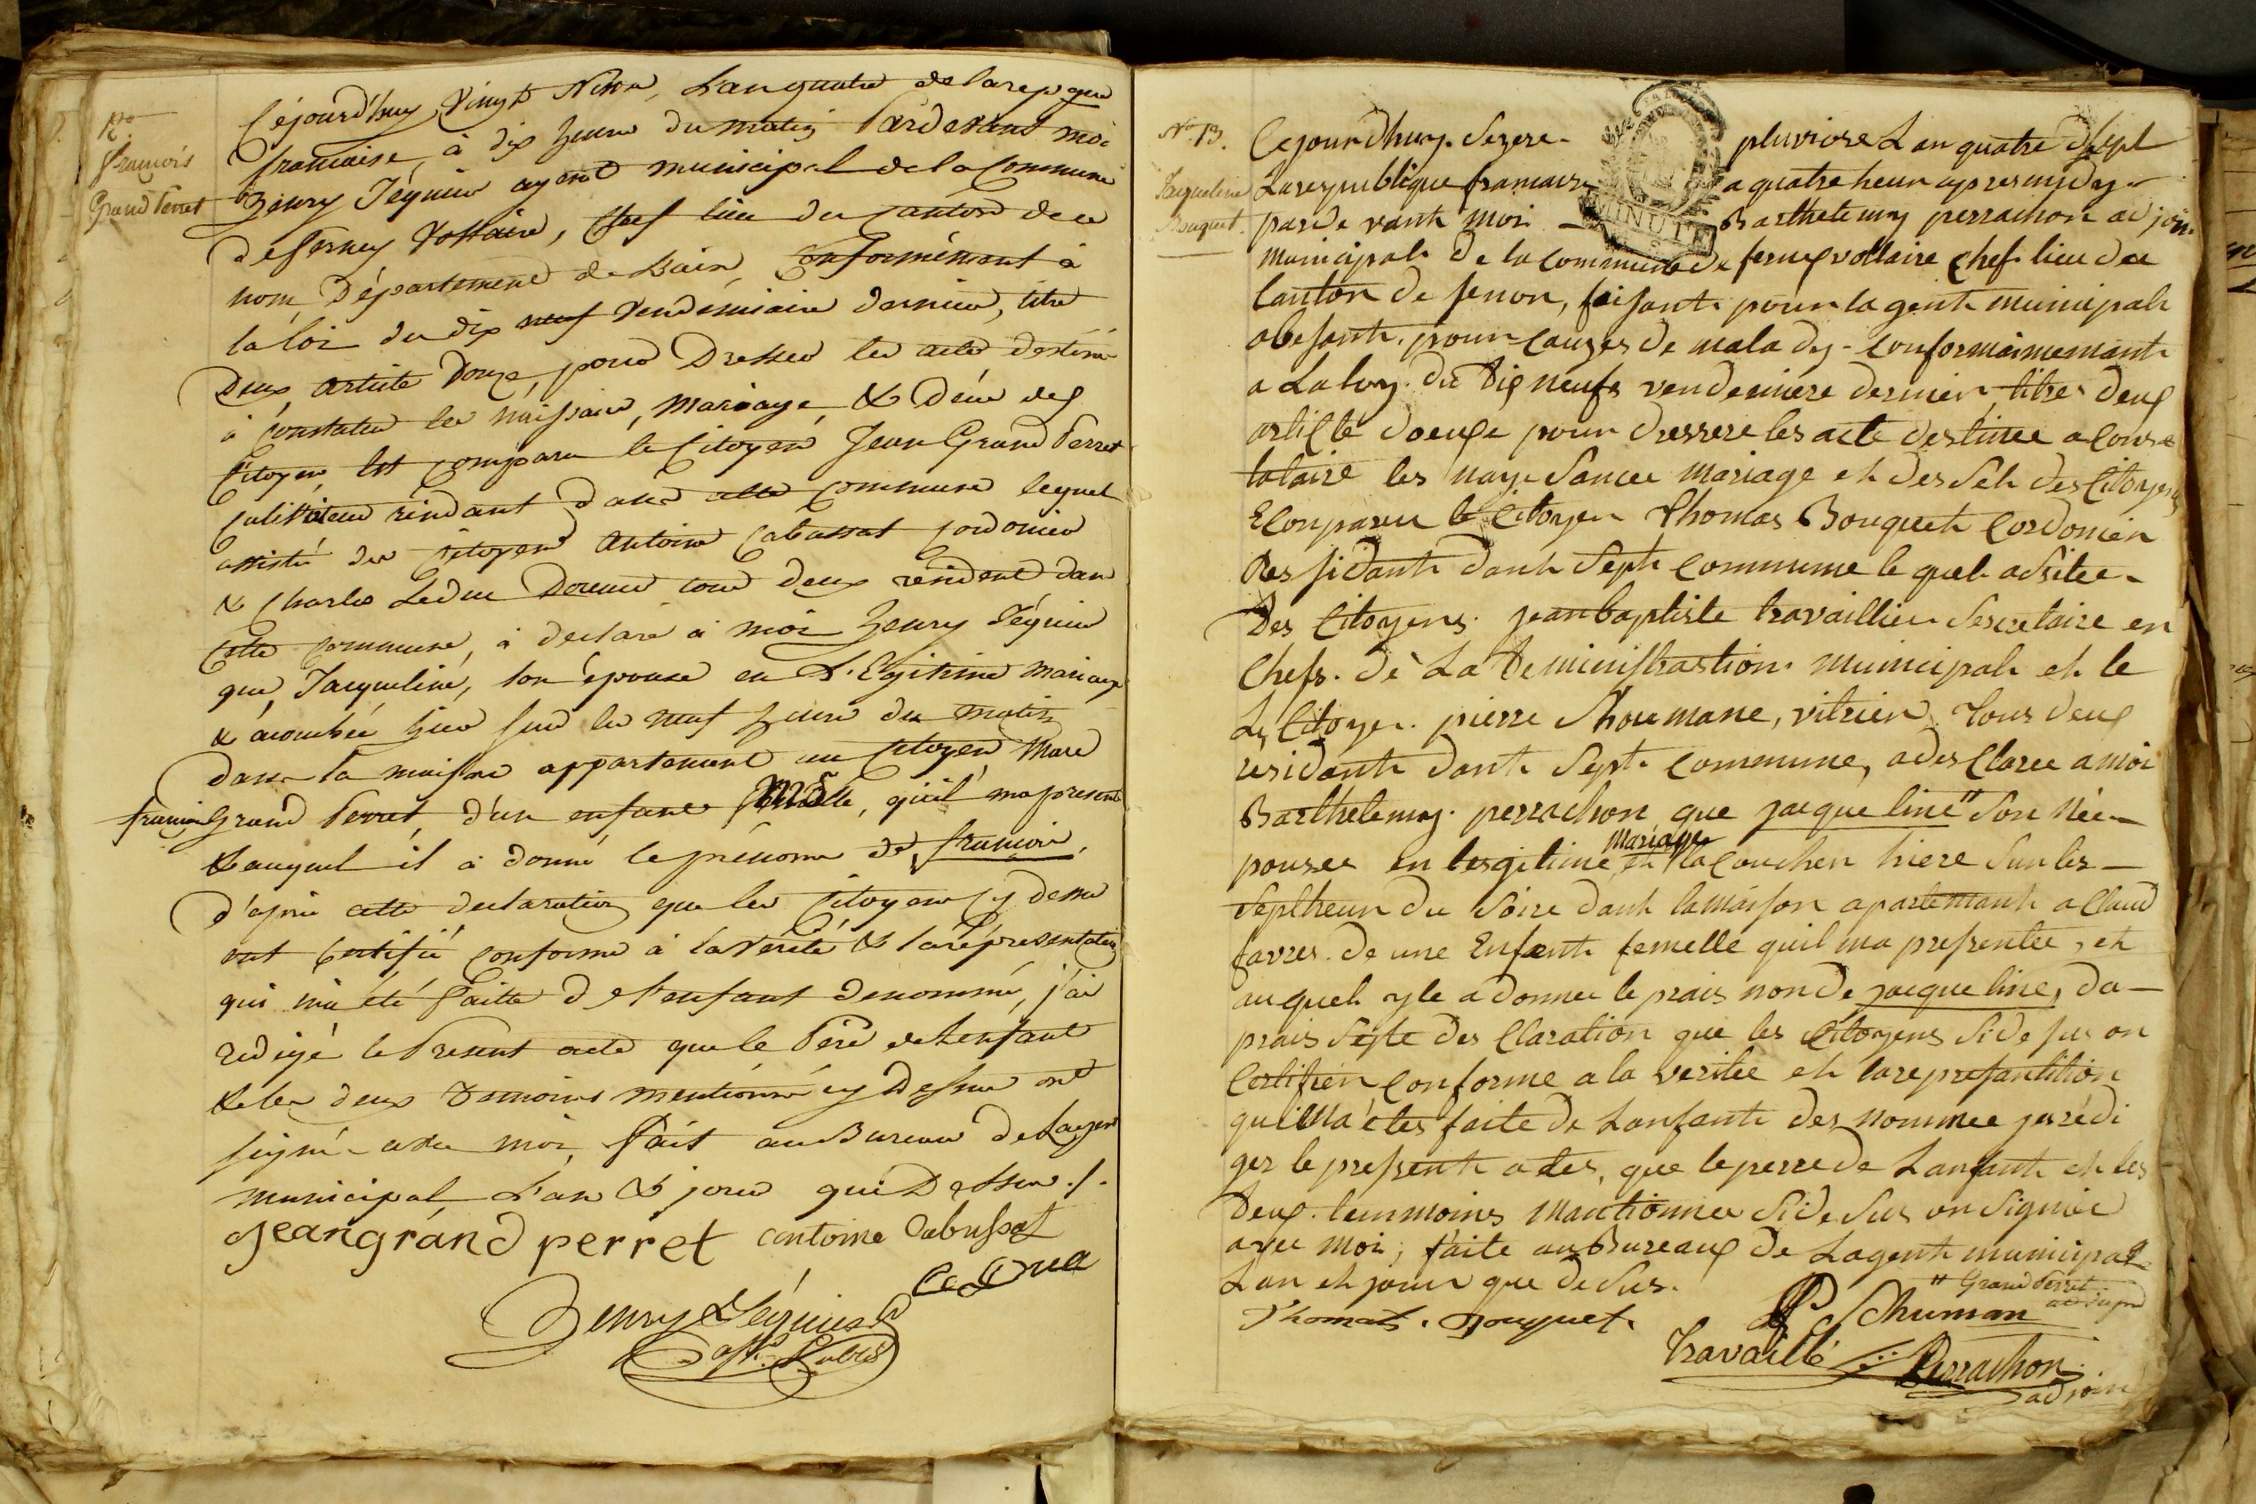 No
françois
Grand Perret
Cejourd'huy Vingt Nivo, L'an quatre de la repque
francaise, à dix heure du matin Pardevant moi
henry Séguin agent municipal de la Commune
de ferney Voltaire, chef lieu du canton de ce
nom, Département de L'ain, Conformément à
la loi du dix neuf vendémiaire dernier, titre
Deux, article Douze, pour Dresser les actes destiné
à constater les naissance, mariage, & Décé des
Citoyen, Est comparu le Citoyen Jean Grand Perret
Cultivateur résidant dans cette commune lequel
assisté des citoyens Antoine Cabussat cordonier
& Charles Leduc Doreur tous deux résident dans
cette commune, à déclaré à moi henry Séguin
que Jacqueline, son épouse en L'Egitime mariage
& acouchée hier sur les neuf heure du matin
dans la maison appartenant au citoyen Marc
françois Grand Perret, d'un enfant male, quil ma presenté
& auquel il à donné le prénom de françois,
d'apris cette declaration que les Citoyens cy dessus
ont certifié conforme à la Vérité & la représentation
qui m'a été faitte de l'enfant denommé, j'ai
redigé le Present acte que le Père de Lenfant
& les deux temoins mentionné cy dessus ont
signé avec moi, fait au Bureau de Lagent
municipal L'an & jour que Dessus ./.
Jean grand perret antoine Cabussat
Le Duc
Henry Séguin
No 13.
Jacqueline
Bouquet.
Cejourdhuy. Sezere- pluviose Lan quatre de sept
La republique francaise a quatre heur apres midy-
parde vant moi - Barthelemy perrachon adjoin
municipale De la commune de ferney voltaire chef lieu du
Canton de senon, faisant pour lagent municipale
abesante, pour cauzes de malady- conformaimemante
a La loy. du Dix neufs vendemiere dernier, titres deux
article doeuze pour dressere les acte destinee a cons-
tataire les nay-sancee mariage et des seh des Citoyens
Econparu le Citoyen Thomas Bouqueth Cordonier
Ressidante danh septe commune le quel adsitee-
Des Citoyens. jeanbaptiste travaillier Sescretaire en
Chefs. de La Deministrastion municipale et le
Le Citoyen. pierre Choumane, vitrier, tous deux
residante dante Septe commune, a desclaree a moi
Barthelemy. perrachon que jacque line" Son née-
pousee en lesgitime mariage eh la Couchen hiere sur les-
septheur du Soire danh la maison apartenante a Claud
favres. de une Enfente femelle quil ma pressentee, et
au queh yle a donnee le prais non de jacque line, da-
prais seste desclaration que les Citoyens Side sus on
Certifien conforme a la veritee eh la represantition
quilma étes faite de Lanfante des nommee jes rédi
ger le pressente actes, que le perre de Lanfante eh les
Deux. temmoins mantionnee Side sus on signiee
avec moi; faite au Bureaux de Lagente municipal
Lan eh jour que de sus.
" Grand Perret
Thomas. Bouquet. P. Schuman
Travaillé Perrachon
adjoin
MINUTE